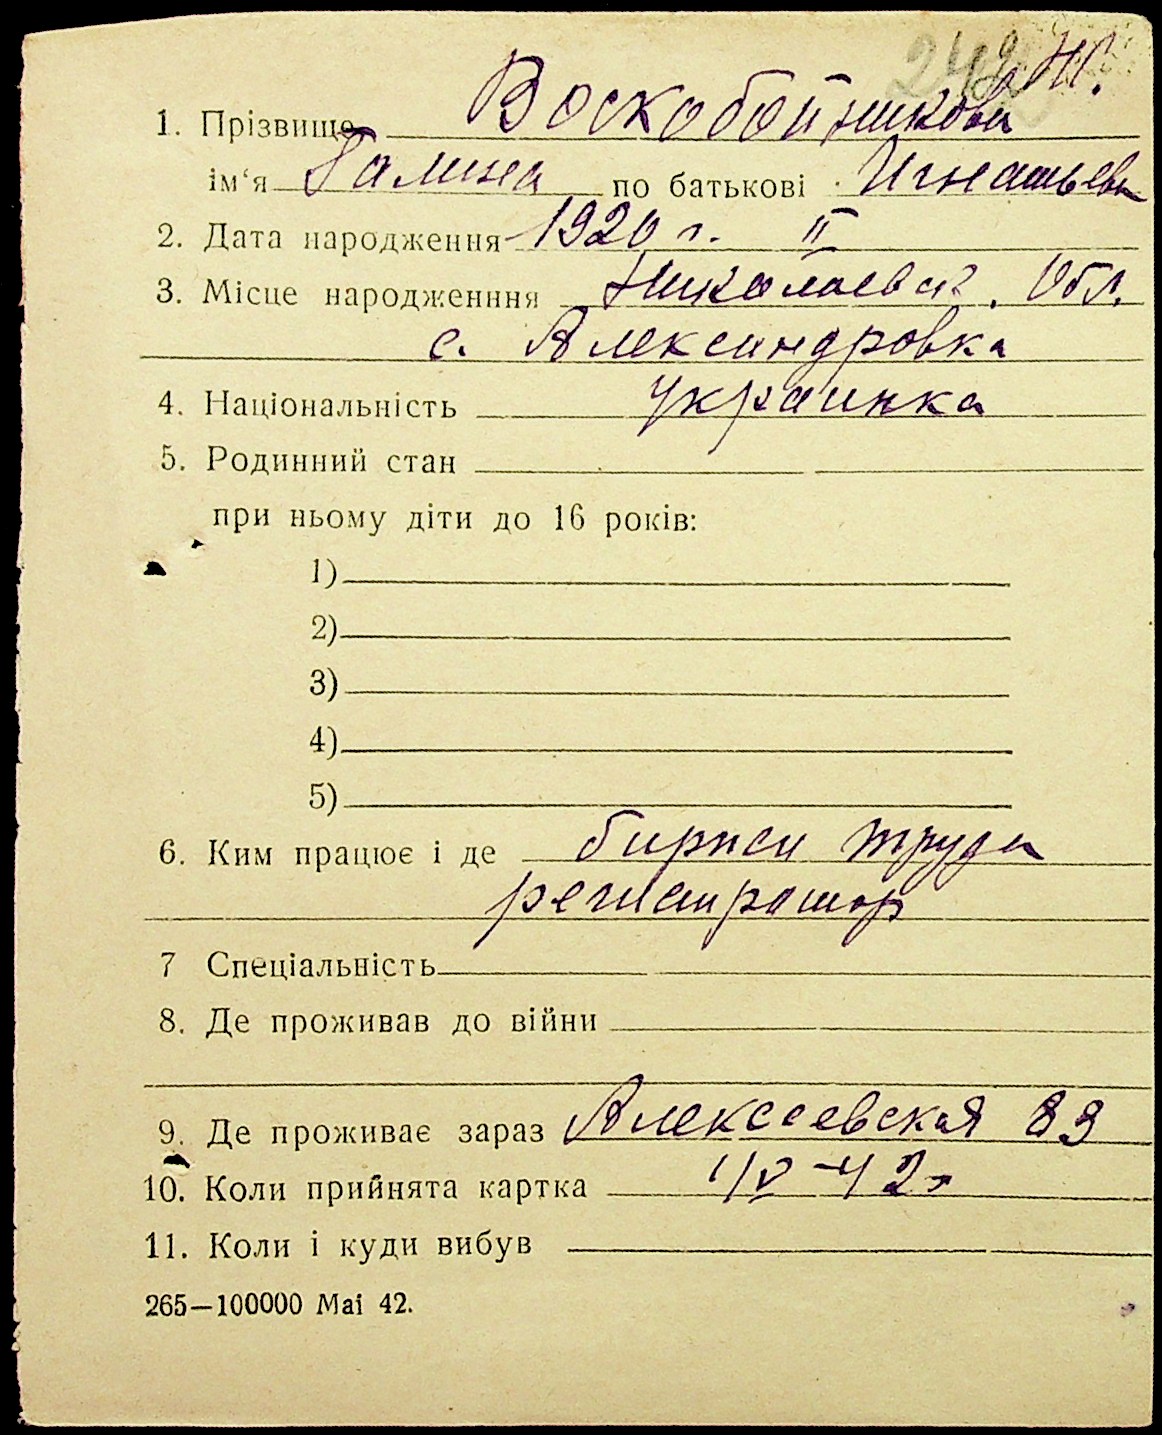 242 Н.
1. Прізвище Воскобойникова
ім‘я Галина по батькові Игнатьевн
2. Дата народження 1920 г. II
3. Місце народженння Николаевск. Обл.
с. Александровка
4. Національність украинка
5. Родинний стан
при ньому діти до 16 років:
1)
2)
3)
4)
5)
6. Ким працює і де биржи труда
регистратор
7 Спеціальність
8. Де проживав до війни
9. Де проживає зараз Алексеевская 83
10. Коли прийнята картка
11. Коли і куди вибув
265—100000 Маі 42.